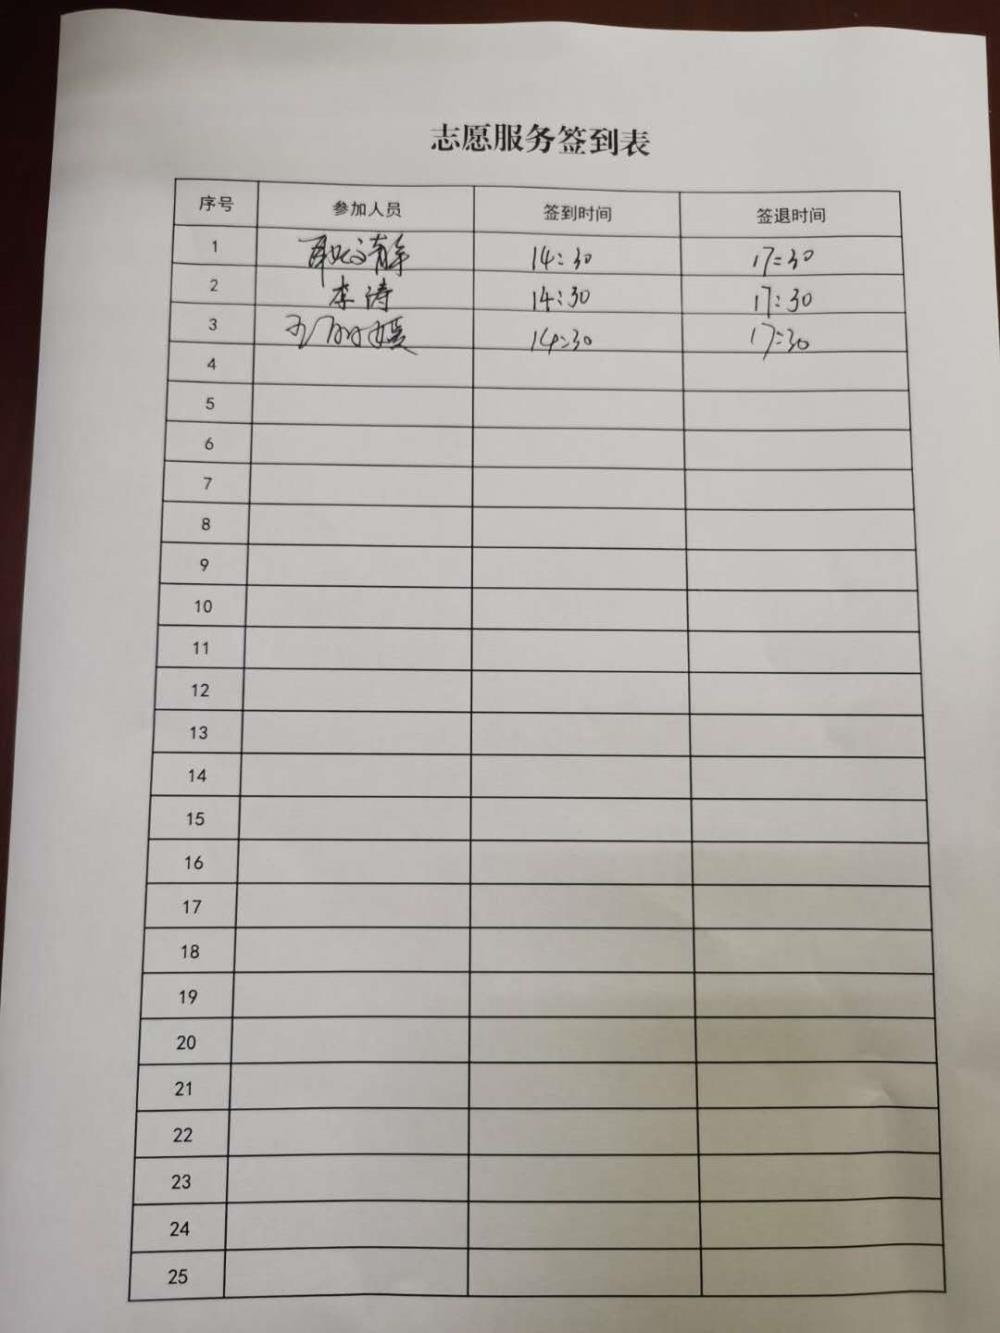 志愿服务签到表
序号 参加人员 签到时间 签退时间
1 14:30 17:30
2 李涛 14:30 17:30
3 14:30 17:30
4
5
6
7
8
9
10
11
12
13
14
15
16
17
18
19
20
21
22
23
24
25